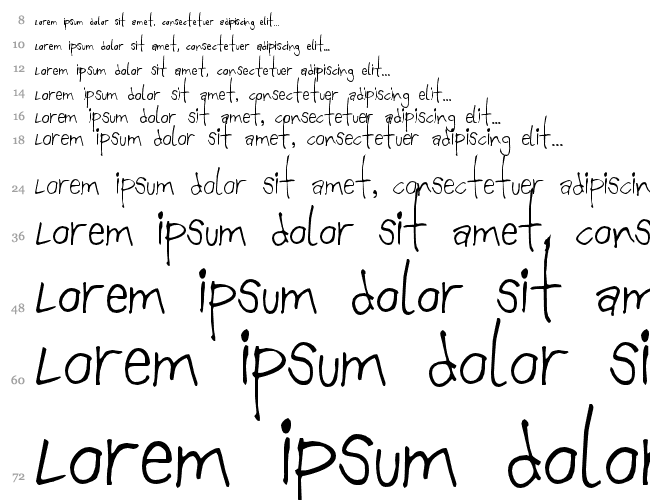 8 Lorem ipsum dolor sit amet, consectetuer adipiscing elit...
10 Lorem ipsum dolor sit amet, consectetuer adipiscing elit...
12 Lorem ipsum dolor sit amet, consectetuer adipiscing elit...
14 Lorem ipsum dolor sit amet, consectetuer adipiscing elit...
16 Lorem ipsum dolor sit amet, consectetuer adipiscing elit...
18 Lorem ipsum dolor sit amet, consectetuer adipiscing elit...
24 Lorem ipsum dolor sit amet, consectetuer adipiscin
36 Lorem ipsum dolor sit amet, cons
48 Lorem ipsum dolor sit am
60 Lorem ipsum dolor si
72 Lorem ipsum dolor